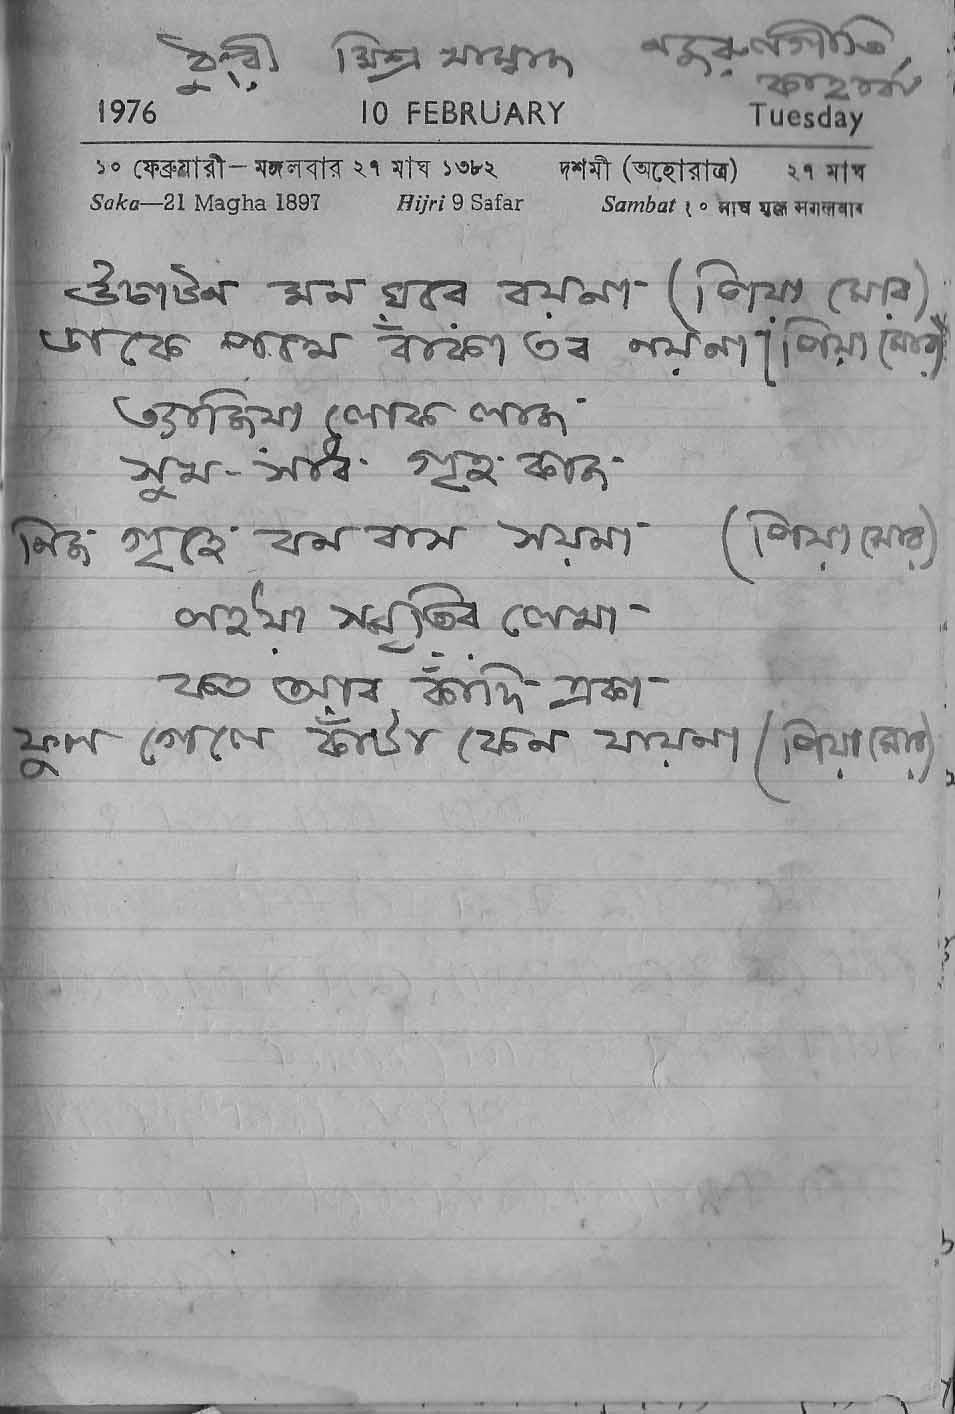 ঠুংরী মিশ্র খাম্বাজ নজরুলগীতি
কাহারবা
1976 10 FEBRUARY Tuesday
১০ ফেব্রুয়ারী — মঙ্গলবার ২৭ মাঘ ১৩৮২ দশমী (অহোরাত্র) ২৭ মাঘ
Saka—21 Magha 1897 Hijri 9 Safar Sambat १० माघ शुक्ल मंगलवार
উচাটন মন ঘরে রয়না (পিয়া মোর)
ডাকে পথে বাঁকা তব নয়না (পিয়া মোর)
ত্যজিয়া লোক লাজ
সুখ - সাধ গৃহ কাজ
নিজ গৃহে বনবাস সয়না (পিয়া মোর)
লইয়া স্মৃতির লেখা
কত আর কাঁদি একা
ফুল গেলে কাঁটা কেন যায়না (পিয়া মোর)